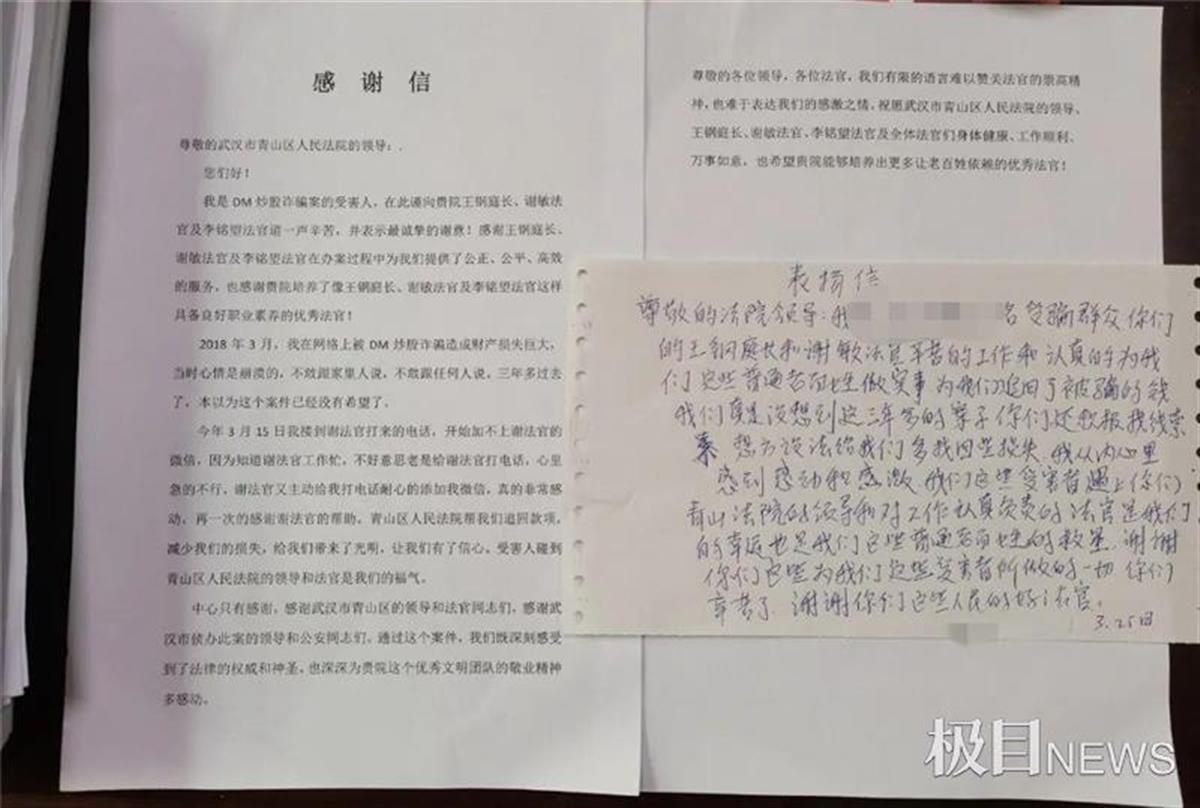 感 谢 信
尊敬的武汉市青山区人民法院的领导：
您们好！
我是 DM 炒股诈骗案的受害人，在此谨向贵院王钢庭长、谢敏法
官及李铭望法官道一声辛苦，并表示最诚挚的谢意！感谢王钢庭长、
谢敏法官及李铭望法官在办案过程中为我们提供了公正、公平、高效
的服务，也感谢贵院培养了像王钢庭长、谢敏法官及李铭望法官这样
具备良好职业素养的优秀法官！
2018 年 3 月，我在网络上被 DM 炒股诈骗造成财产损失巨大，
当时心情是崩溃的，不敢跟家里人说，不敢跟任何人说，三年多过去
了，本以为这个案件已经没有希望了。
今年 3 月 15 日我接到谢法官打来的电话，开始加不上谢法官的
微信，因为知道谢法官工作忙，不好意思老是给谢法官打电话，心里
急的不行，谢法官又主动给我打电话耐心的添加我微信，真的非常感
动，再一次的感谢谢法官的帮助。青山区人民法院帮我们追回款项，
减少我们的损失，给我们带来了光明，让我们有了信心。受害人碰到
青山区人民法院的领导和法官是我们的福气。
中心只有感谢，感谢武汉市青山区的领导和法官同志们，感谢武
汉市侦办此案的领导和公安同志们。通过这个案件，我们既深刻感受
到了法律的权威和神圣，也深深为贵院这个优秀文明团队的敬业精神
多感动。
尊敬的各位领导，各位法官，我们有限的语言难以赞美法官的崇高精
神，也难于表达我们的感激之情，祝愿武汉市青山区人民法院的领导、
王钢庭长、谢敏法官、李铭望法官及全体法官们身体健康、工作顺利、
万事如意，也希望贵院能够培养出更多让老百姓依赖的优秀法官！
表扬信
尊敬的法院领导：我 名受骗群众你们
的王钢庭长和谢敏法官辛苦的工作和认真的为我
们这些普通老百姓做实事为我们追回了被骗的钱
我们真是没想到这三年多的案子你们还 找线索
想方设法给我们多找回些损失，我从内心里
感到感动和感激，我们这些受害者遇上你们
青山法院的领导和对工作认真负责的法官是我们
的幸运也是我们这些普通老百姓的救星，谢谢
你们这些为我们这些受害者所做的一切 你们
辛苦了 谢谢你们这些人民的好法官。
3.25日
极目NEWS